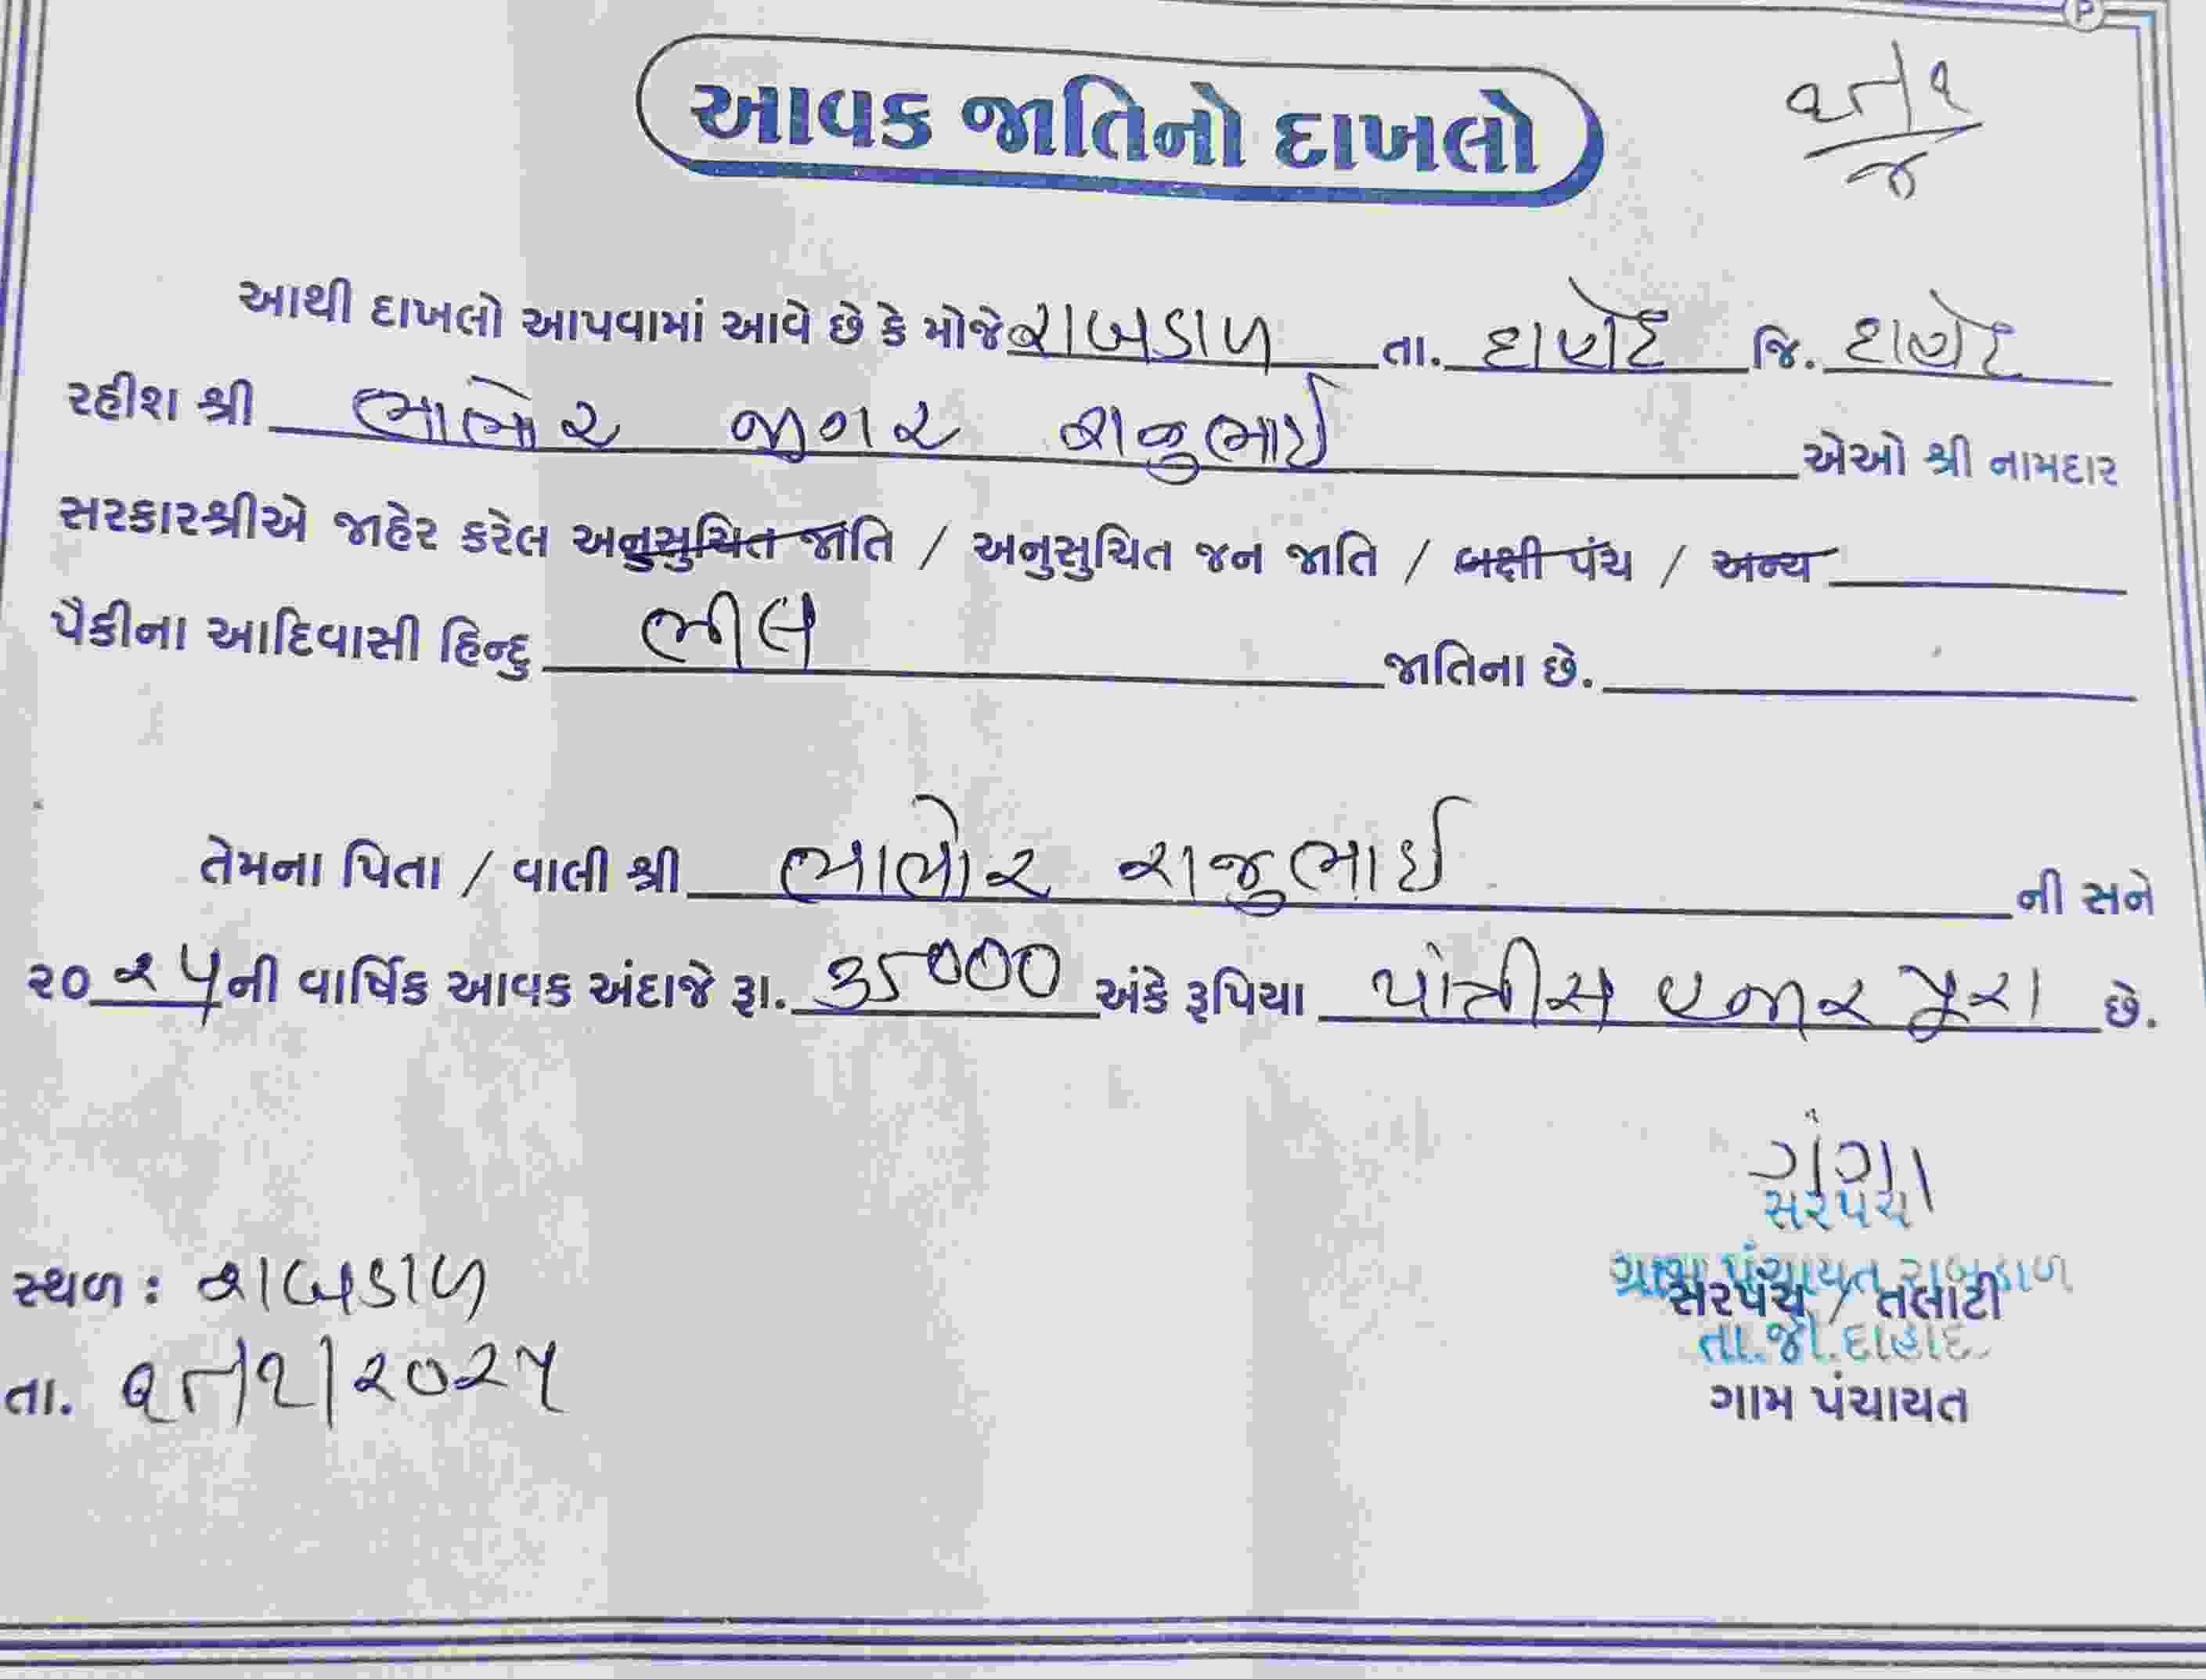 આવક જાતિનો દાખલો
આથી દાખલો આપવામાં આવે છે કે મોજે રાબડાળ તા. દાહોદ જિ. દાહોદ
રહીશ શ્રી ભાભોર જીગર રાજુભાઈ એઓ શ્રી નામદાર
સરકારશ્રીએ જાહેર કરેલ અનુસુચિત જાતિ / અનુસુચિત જન જાતિ / બક્ષી પંચ / અન્ય
પૈકીના આદિવાસી હિન્દુ ભીલ જાતિના છે.
તેમના પિતા / વાલી શ્રી ભાભોર રાજુભાઈ ની સને
૨૦૨૫ની વાર્ષિક આવક અંદાજે રૂા. 35000 અંકે રૂપિયા પાંત્રીસ હજાર પુરા છે.
ગંગા
સરપંચ
ગ્રામ પંચાયત રાબડાળ
સ્થળ : રાબડાળ
સરપંચ / તલાટી
તા.જી.દાહોદ
તા. ૨૦૨૫
ગામ પંચાયત